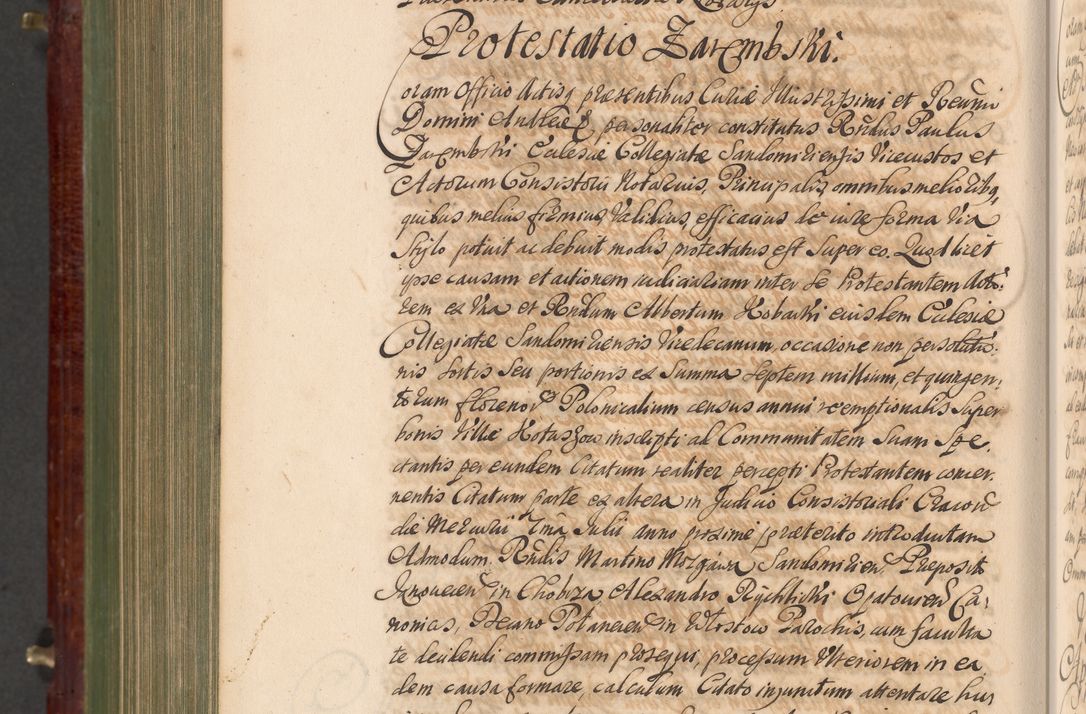 Protestatio Zarembski.
oram Officio Actisq praesentibus Curiae Illustrissimi et Reāmi
Domini Andreae personaliter constitutus Rndus Paulus
Zarembski Ecclesiae Collegiatae Sandomiriensis Vicecustos et
Actorum Consistorii Notarius, Principalis, omnibus melioribq,
quibus melius firmius, Validius, efficacius de iure forma Via
Stylo potuit ac debuit modis protestatus est Super eo. Quod licet
ipse causam et actionem iudiciariam inter Se Protestantem Acto:
rem ex Una et Rndum Albertum Kobacki eiusdem Ecclesiae
Collegiatae Sandomiriensis Vicedecanum, occasione non persoluti:
nis Sortis Seu portionis ex Summa Septem millium, et quingen,
torum florenor Polonicalium census annui reemptionalis Super
bonis Villae Kotuszow inscripti ad Communitatem Suam Spe,
ctantis per eundem Citatum realiter percepti Protestantem concer,
nentis Citatum parte ex altera in Judicio Consistoriali Cracoū
die Mercurii 7ma Julii anno proxime praeterito introductam
Admodum Rndis Martino Sandomirien Praeposit
in Chobrza Alexandro Rychlicki Opatovien Ca:
nonicis, Decano Polanecen in Parochis, cum faculta
te decidendi commissam prosequi, processum Ulteriorem in ea
dem causa formare, calculum Citato injunctum attentare hu